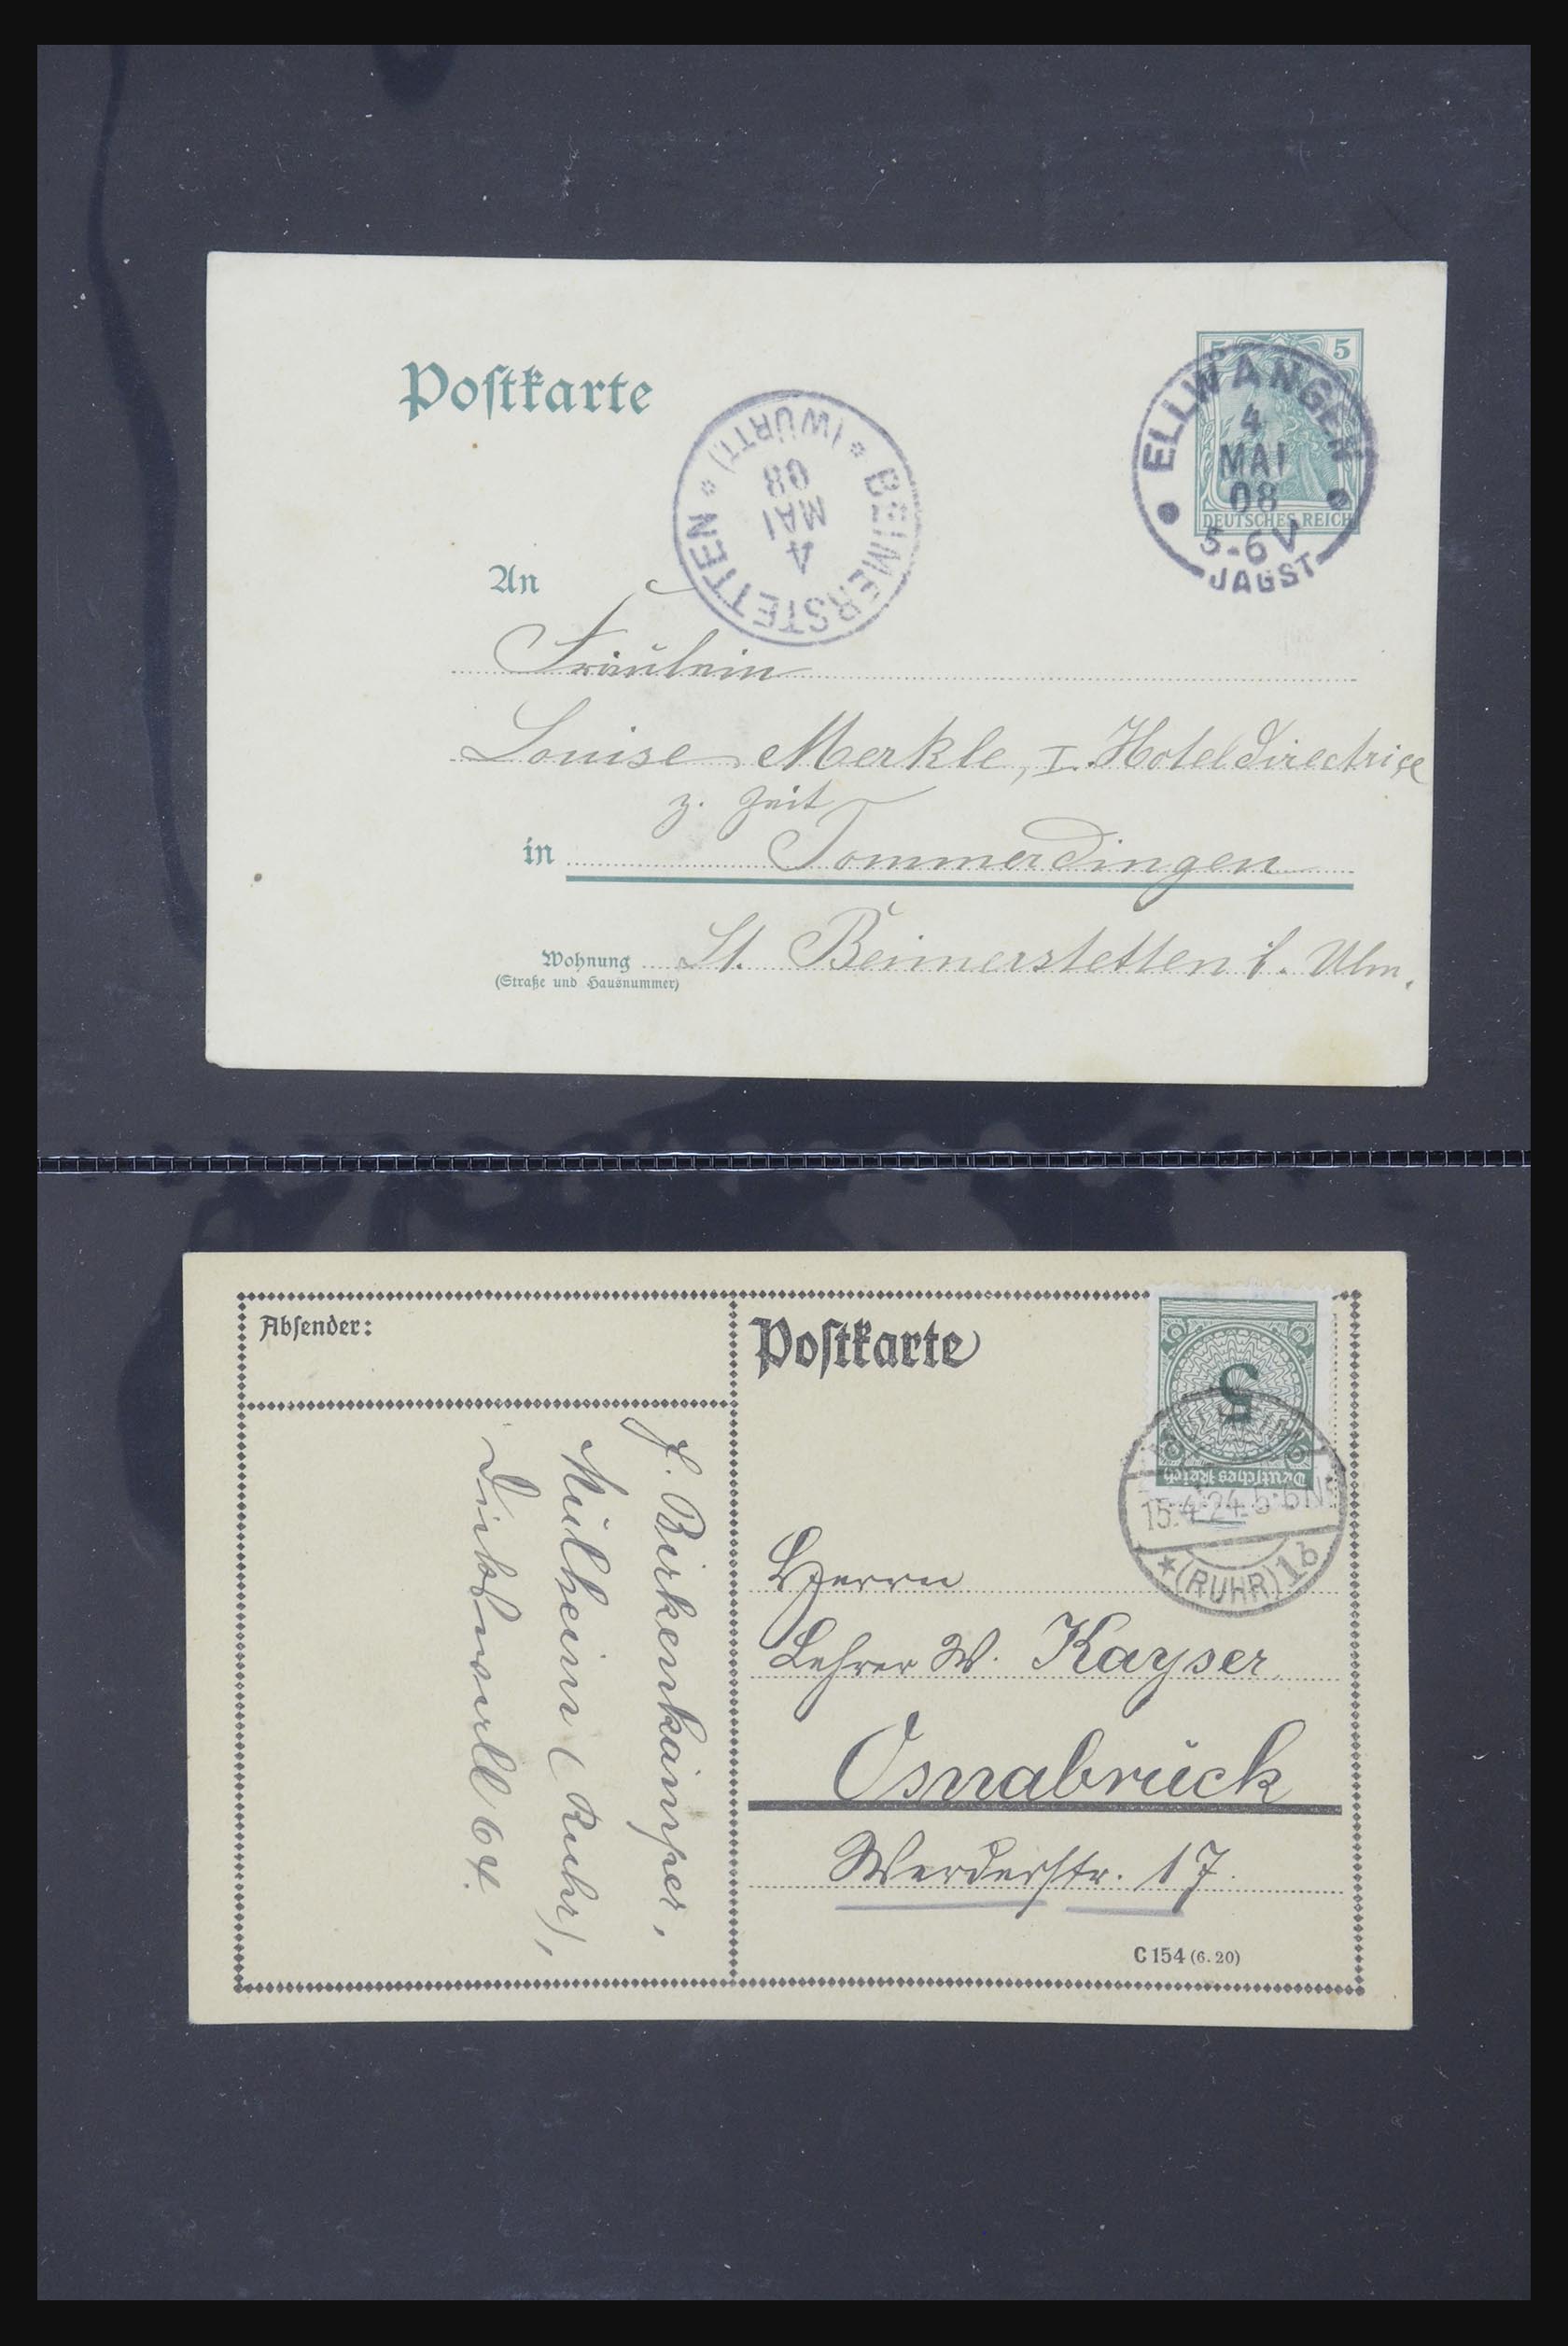 Postkarte
5 5
DEUTSCHES REICH
ELLWANGEN
4
MAI
08
5-6V
JAGST
BEIMERSTETTEN
(WÜRTT.)
4
MAI
08
An
Fräulein
Louise Merkle, I. Hoteldirectrice
z. Zeit
in Tommerdingen
Wohnung St. Beimerstetten b. Ulm.
(Straße und Hausnummer)
Absender:
F. Birkenkämper,
Mülheim (Ruhr),
64.
Postkarte
5
Deutsches Reich
15.4.24.5-6N
(RUHR) 1b
Herrn
Lehrer W. Kayser
Osnabrück
Werderstr. 17.
C 154 (6. 20)